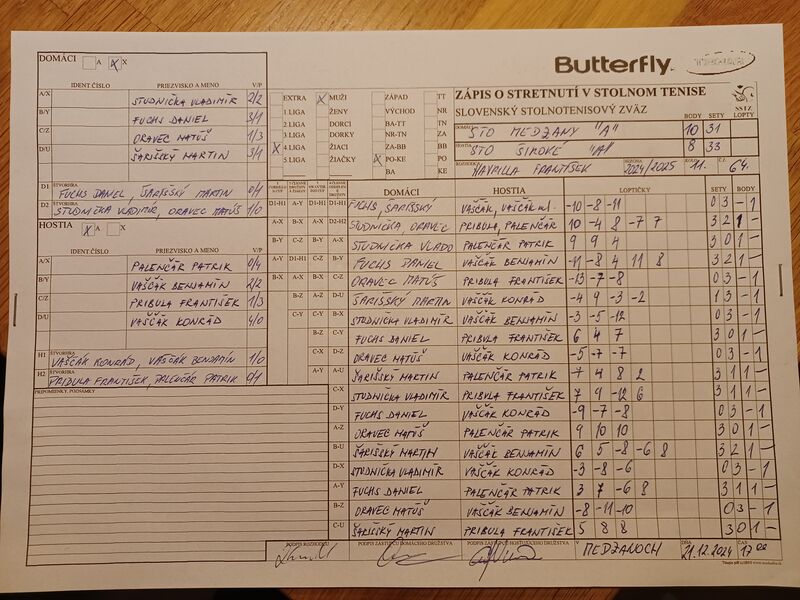 DOMÁCI A X X
IDENT.ČÍSLO PRIEZVISKO A MENO V/P
A/X STUDNIČKA VLADIMÍR 2/2
B/Y FUCHS DANIEL 3/1
C/Z ORAVEC MATÚŠ 1/3
D/U ŠARIŠSKÝ MARTIN 3/1
D1 ŠTVORHRA FUCHS DANIEL, ŠARIŠSKÝ MARTIN 0/1
D2 ŠTVORHRA STUDNIČKA VLADIMÍR, ORAVEC MATÚŠ 1/0
HOSTIA X A X
IDENT.ČÍSLO PRIEZVISKO A MENO V/P
A/X PALENČÁR PATRIK 0/4
B/Y VAŠČÁK BENJAMÍN 2/2
C/Z PRIBULA FRANTIŠEK 1/3
D/U VAŠČÁK KONRÁD 4/0
H1 ŠTVORHRA VAŠČÁK KONRÁD, VAŠČÁK BENJAMÍN 1/0
H2 ŠTVORHRA PRIBULA FRANTIŠEK, PALENČÁR PATRIK 0/1
PRIPOMIENKY, POZNÁMKY
Butterfly
EXTRA X MUŽI ZÁPAD TT
LIGA ŽENY VÝCHOD NR
2 LIGA DORCI BA-TT TN
3 LIGA DORKY NR-TN ZA
X 4 LIGA ŽIACI ZA-BB BB
5 LIGA ŽIAČKY X PO-KE PO
BA KE
ZÁPIS O STRETNUTÍ V STOLNOM TENISE
SLOVENSKÝ STOLNOTENISOVÝ ZVÄZ
SSTZ
BODY SETY LOPTY
STO MEDZANY "A" 10 31
HOSTIA STO ŠIROKÉ "A" 8 33
HAVRILLA FRANTIŠEK SEZÓNA 2024/2025 KOLO 11. Č.Z. 64.
DOMÁCI HOSTIA LOPTIČKY SETY BODY
D1-H1 A-Y D1-H1 D1-H1 FUCHS, ŠARIŠSKÝ VAŠČÁK, VAŠČÁK ml. -10 -8 -11 0 3 - 1
A-X B-X D2-H2 D2-H2 STUDNIČKA, ORAVEC PRIBULA, PALENČÁR 10 -4 8 -7 7 3 2 1 -
B-Y C-Z B-Y A-X STUDNIČKA VLADO PALENČÁR PATRIK 9 9 4 3 0 1 -
A-Y D1-H1 C-Z B-Y FUCHS DANIEL VAŠČÁK BENJAMÍN -11 -8 4 11 8 3 2 1 -
B-X A-X B-X C-Z ORAVEC MATÚŠ PRIBULA FRANTIŠEK -13 -7 -8 0 3 - 1
B-Z A-Z D-U ŠARIŠSKÝ MARTIN VAŠČÁK KONRÁD -4 9 -3 -2 1 3 - 1
C-Y C-Y B-X STUDNIČKA VLADIMÍR VAŠČÁK BENJAMÍN -3 -5 -12 0 3 - 1
B-Z FUCHS DANIEL PRIBULA FRANTIŠEK 6 4 7 3 0 1 -
C-X D-Z ORAVEC MATÚŠ VAŠČÁK KONRÁD -5 -7 -7 0 3 - 1
A-Y ŠARIŠSKÝ MARTIN PALENČÁR PATRIK -7 4 8 2 3 1 1 -
C-X STUDNIČKA VLADIMÍR PRIBULA FRANTIŠEK 7 9 -12 6 3 1 1 -
D-Y FUCHS DANIEL VAŠČÁK KONRÁD -9 -7 -8 0 3 - 1
A-Z ORAVEC MATÚŠ PALENČÁR PATRIK 9 10 10 3 0 1 -
B-U ŠARIŠSKÝ MARTIN VAŠČÁK BENJAMÍN 6 5 -8 -6 8 3 2 1 -
D-X STUDNIČKA VLADIMÍR VAŠČÁK KONRÁD -3 -8 -6 0 3 - 1
A-Y FUCHS DANIEL PALENČÁR PATRIK 3 7 -6 8 3 1 1 -
B-Z ORAVEC MATÚŠ VAŠČÁK BENJAMÍN -8 -11 -10 0 3 - 1
C-U ŠARIŠSKÝ MARTIN PRIBULA FRANTIŠEK 5 8 8 3 0 1 -
PODPIS ROZHODCU PODPIS ZÁSTUPCU DOMÁCEHO DRUŽSTVA PODPIS ZÁSTUPCU HOSŤUJÚCEHO DRUŽSTVA V MEDZANOCH DŇA 21.12.2024 ČAS 17 00